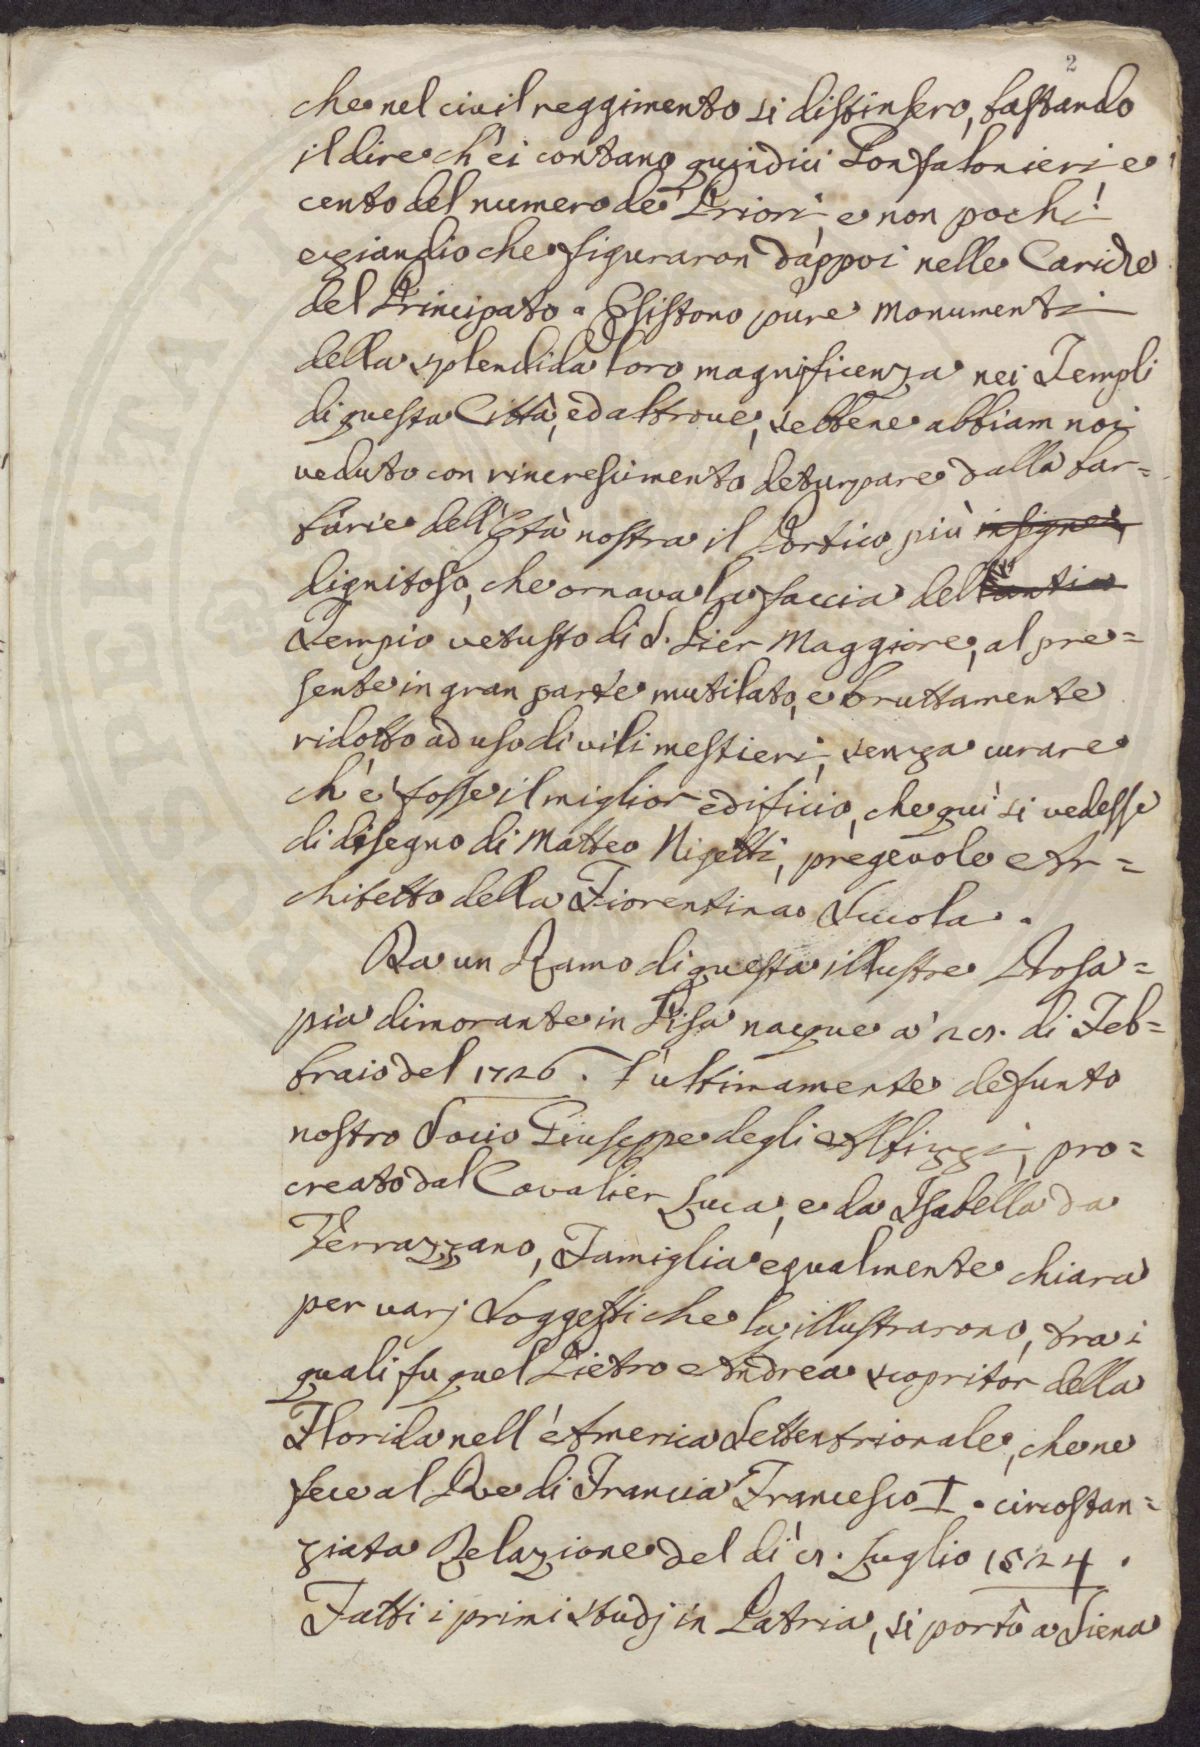 2
che nel civil reggimento si distinsero, bastando
il dire ch'ei contano quindici Gonfalonieri e
cento del numero de' Priori, e non pochi
eziandio che figuraron dappoi nelle Cariche
del Principato. Esistono pure monumenti
della splendida loro magnificenza nei Templi
di questa Città, ed altrove, sebbene abbiam noi
veduto con rincrescimento deturpare dalla bar=
barie dell'Età nostra il Portico più insigne,
dignitoso, che ornava la faccia dell'antico
Tempio vetusto di S. Pier Maggiore, al pre=
sente in gran parte mutilato, e bruttamente
ridotto ad uso di vili mestieri, senza curare
ch'e' fosse il miglior edificio, che quì si vedesse
di disegno di Matteo Nigetti, pregevole Ar=
chitetto della Fiorentina Scuola.
Da un Ramo di questa illustre Prosa=
pia dimorante in Pisa nacque a' 25. di Feb=
braio del 1726. l'ultimamente defunto
nostro Socio Giuseppe degli Albizzi, pro=
creato dal Cavalier Luca, e da Isabella da
Verrazzano, Famiglia egualmente chiara
per varj Soggetti che la illustrarono, tra i
quali fu quel Pietro Andrea scopritor della
Florida nell'America Settentrionale, che ne
fece al Re di Francia Francesco I. circostan=
ziata Relazione del dì 5. Luglio 1524.
Fatti i primi studj in Patria, si portò a Siena